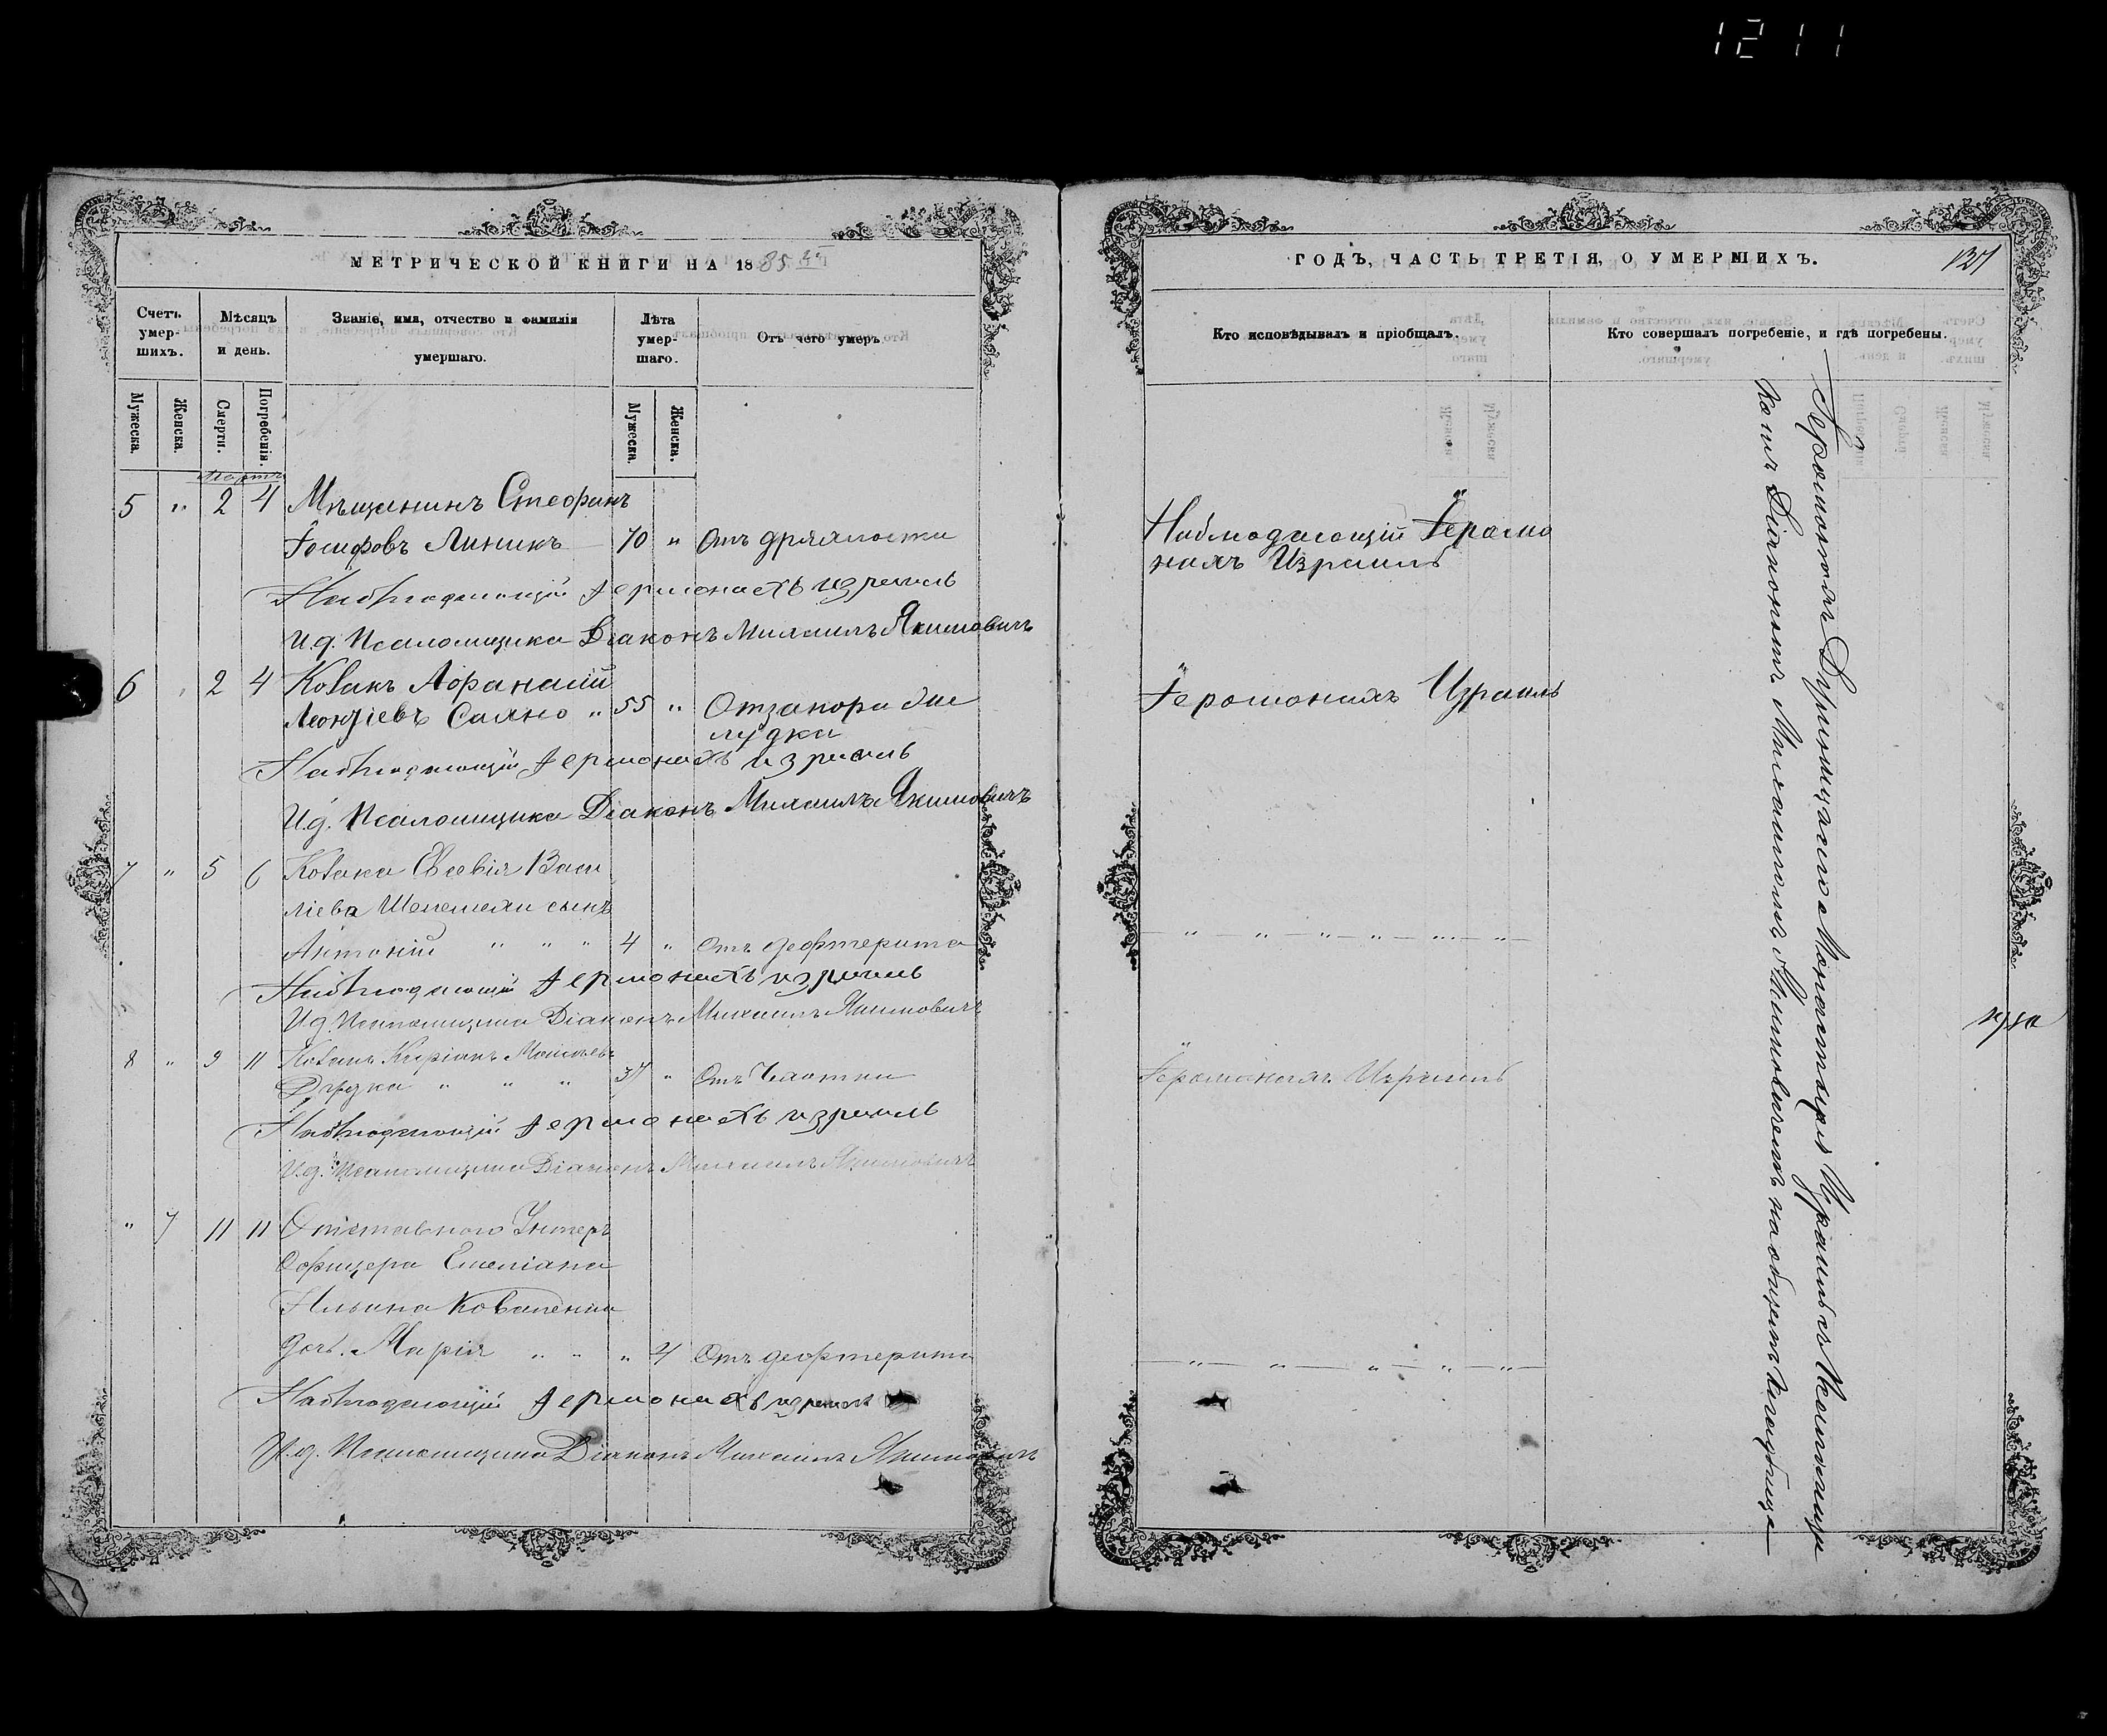 1211
МЕТРИЧЕСКОЙ КНИГИ НА 1885
Счетъ умер-шихъ.
Мѣсяцъ и день.
Званіе, имя, отчество и фамилія умершаго.
Лѣта умер-шаго.
Отъ чего умеръ.
Мужеска.
Женска.
Смерти.
Погребенія.
Мужеска.
Женска.
Мартъ
5 " 2 4 Мѣщанинъ Стефанъ
Іосифовъ Линикъ 70 " Отъ дряхлости
Наблюдающій Іермонахъ Израиль
И.д. Псаломщика Діаконъ Михаилъ Якимовичъ
6 " 2 4 Козакъ Афанасій
Леонтіевъ Сахно " 55 " Отъ запора
Наблюдающій Іермонахъ Израиль
И.д. Псаломщика Діаконъ Михаилъ Якимовичъ
7 " 5 6 Козака Евсевія Васи
ліева сынъ
Антоній " " " 4 " Отъ дефтерита
Наблюдающій Іермонахъ Израиль
И.д. Псаломщика Діаконъ Михаилъ Якимовичъ
8 " 9 11 Козакъ Кипріанъ
" " " 37 " Отъ Чахотки
Наблюдающій Іермонахъ Израиль
И.д. Псаломщика Діаконъ Михаилъ Якимовичъ
" 7 11 11 Отставного Унтеръ
Офицера Емеліана
Коваленка
дочь Марія " " " 4 Отъ дефтерита
Наблюдающій Іермонахъ Израиль
И.д. Псаломщика Діаконъ Михаилъ Якимовичъ
ГОДЪ, ЧАСТЬ ТРЕТІЯ, О УМЕРШИХЪ.
127
Кто исповѣдывалъ и пріобщалъ.
Кто совершалъ погребеніе, и гдѣ погребены.
Наблюдающій Іеромо
нахъ Израиль
Іеромонахъ Израиль
" " " " " "
Іеромонахъ Израиль
" " " " "
Іеромонахъ Монастыря Израиль съ Псаломщи
комъ Діакономъ Михаиломъ Якимовичемъ на общемъ кладбище